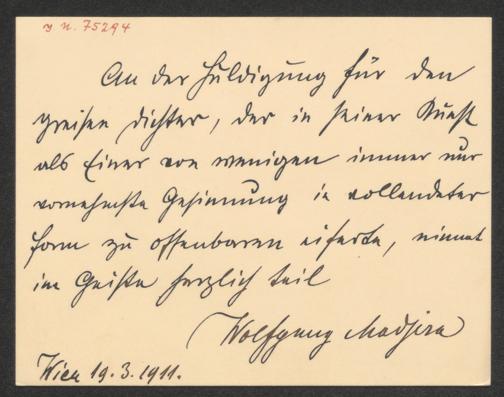 J. N. 75294
An der Huldigung für den
greisen Dichter, der in seiner Kunst
als Einer von wenigen immer nur
vornehmste Gesinnung in vollendeter
Form zu offenbaren eiferte, nimmt
im Geiste herzlich teil
Wolfgang Madjera
Wien 19.3.1911.